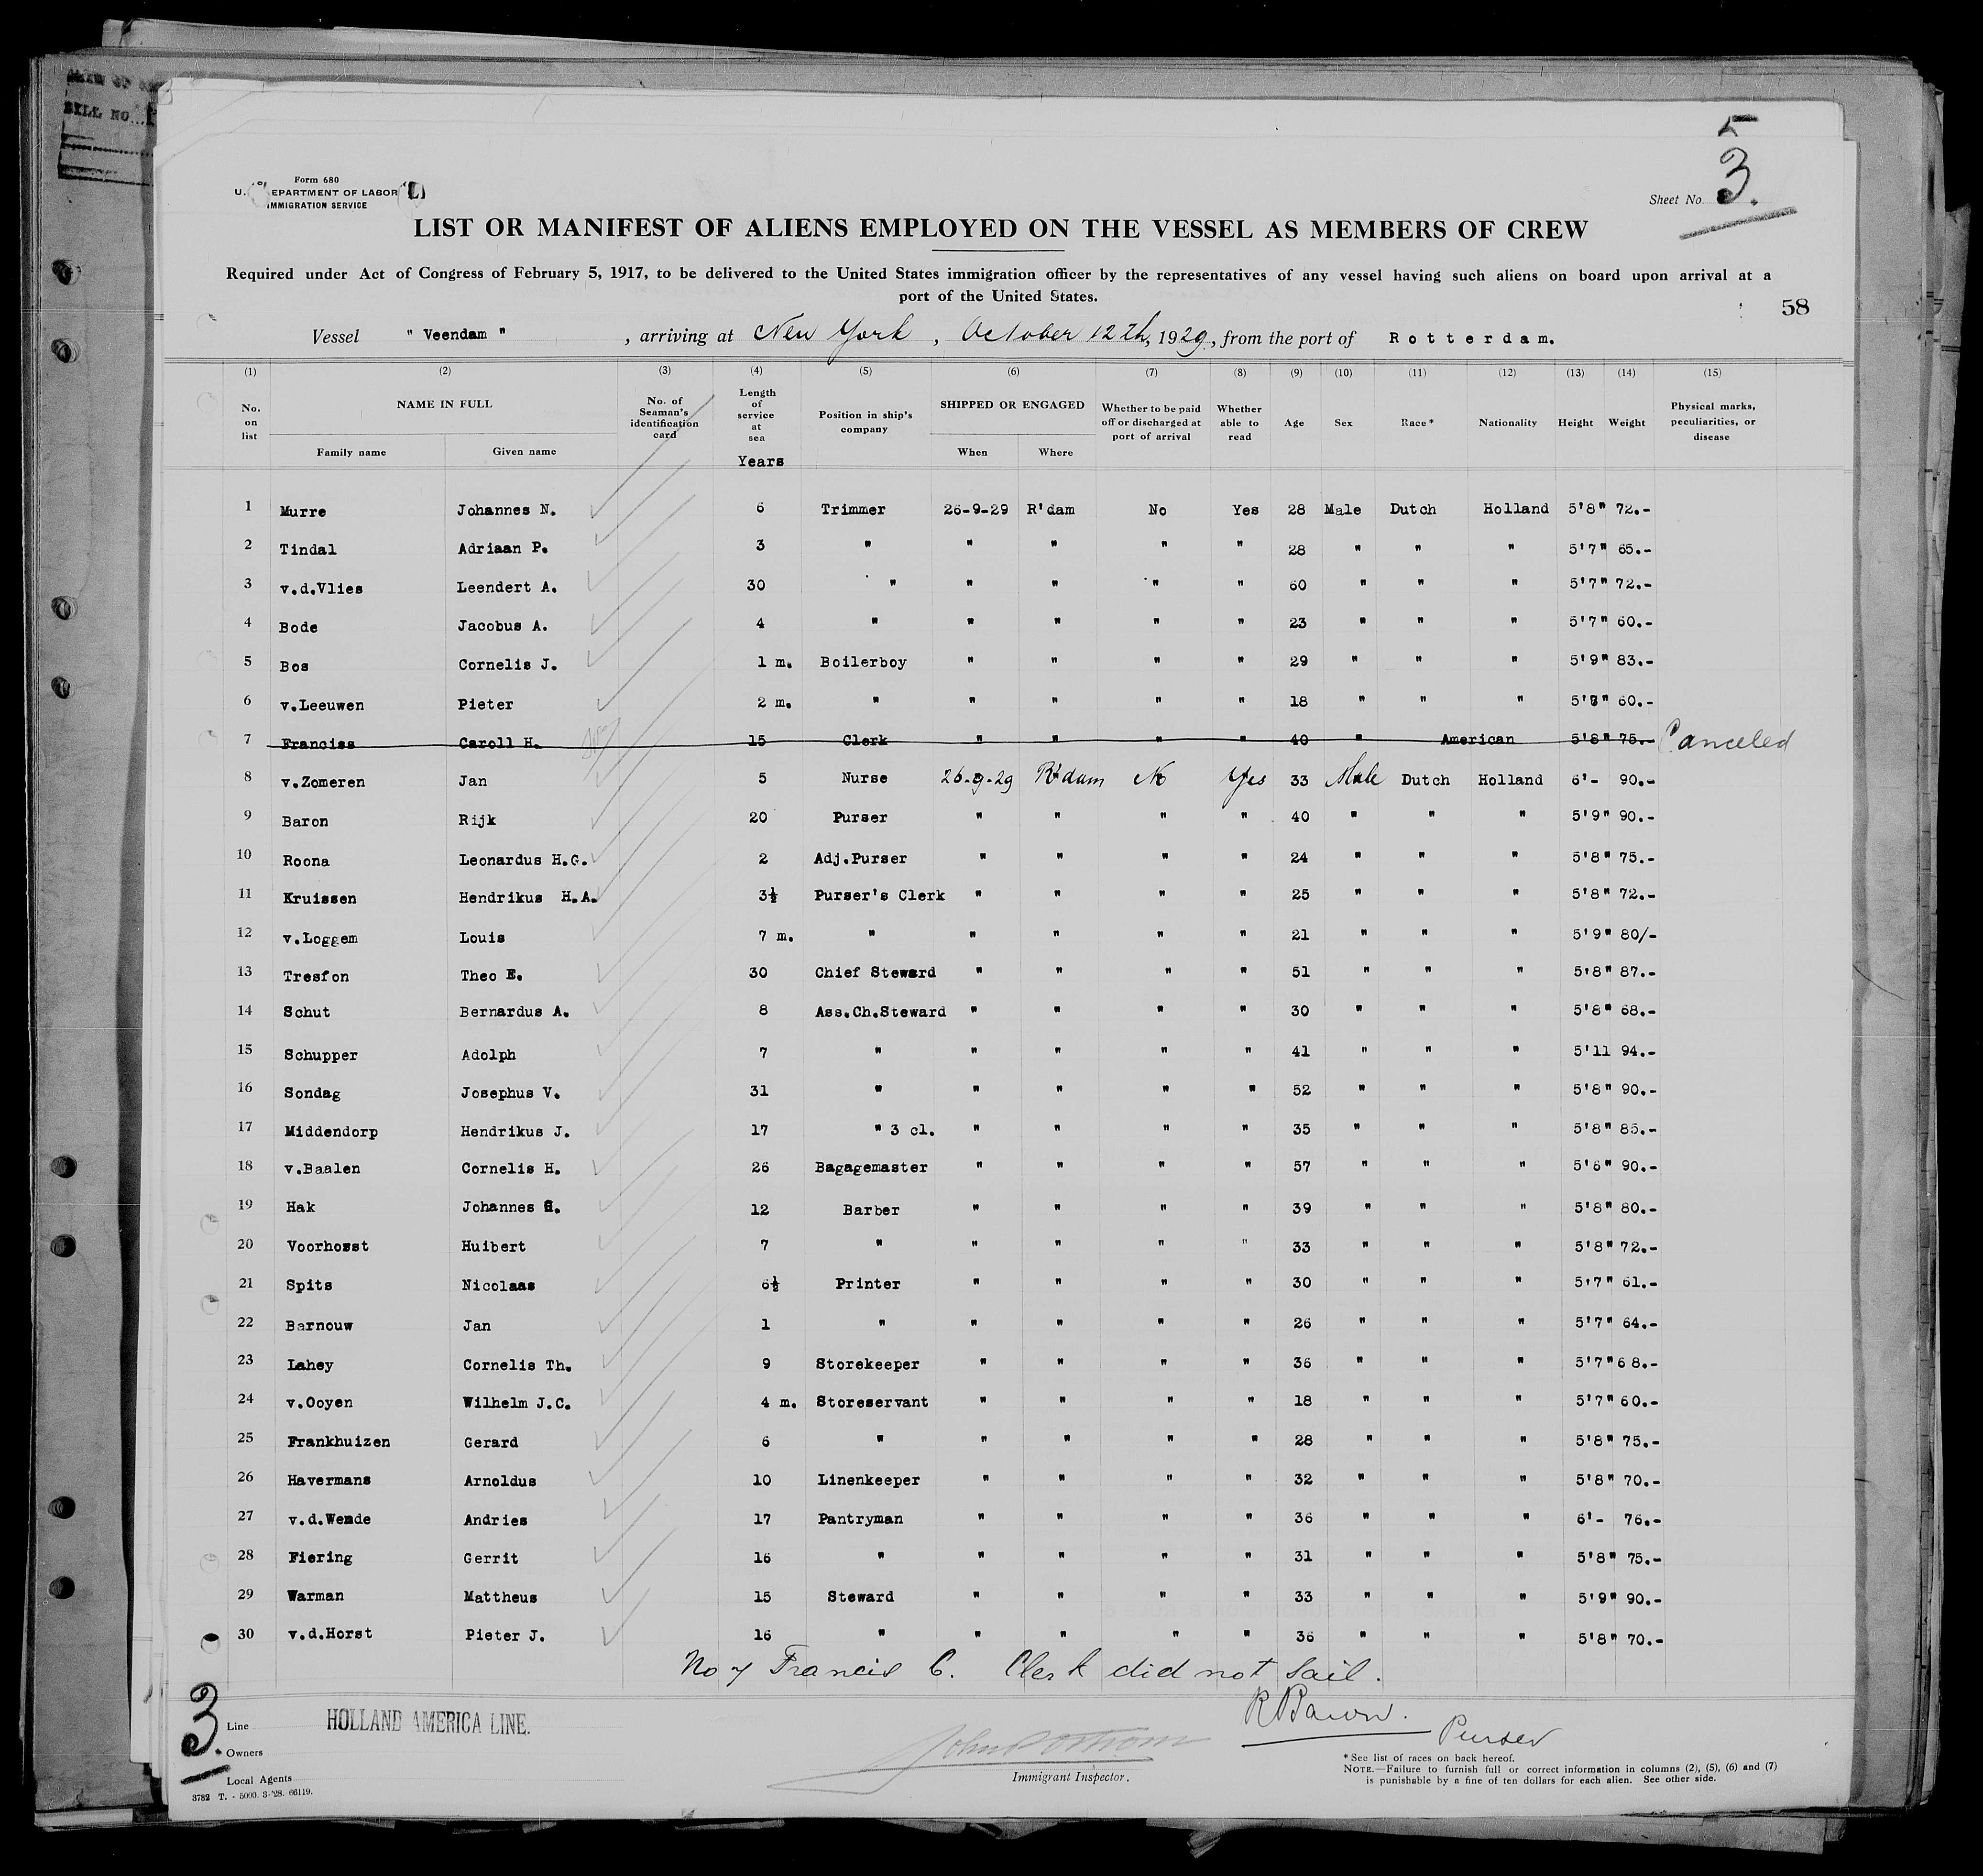 BILL NO.
5
3.
Form 680
U. EPARTMENT OF LABOR
IMMIGRATION SERVICE
Sheet No.
LIST OR MANIFEST OF ALIENS EMPLOYED ON THE VESSEL AS MEMBERS OF CREW
Required under Act of Congress of February 5, 1917, to be delivered to the United States immigration officer by the representatives of any vessel having such aliens on board upon arrival at a
port of the United States.
58
Vessel " Veendam " , arriving at New York , October 12th, 1929, from the port of Rotterdam.
(1) (2) (3) (4) (5) (6) (7) (8) (9) (10) (11) (12) (13) (14) (15)
No. on list NAME IN FULL Family name Given name No. of Seaman's identification card Length of service at sea Years Position in ship's company SHIPPED OR ENGAGED When Where Whether to be paid off or discharged at port of arrival Whether able to read Age Sex Race* Nationality Height Weight Physical marks, peculiarities, or disease
1 Murre Johannes N. 6 Trimmer 26-9-29 R'dam No Yes 28 Male Dutch Holland 5'8" 72.-
2 Tindal Adriaan P. 3 " " " " " 28 " " " 5'7" 65.-
3 v.d.Vlies Leendert A. 30 " " " " " 60 " " " 5'7" 72.-
4 Bode Jacobus A. 4 " " " " " 23 " " " 5'7" 60.-
5 Bos Cornelis J. 1 m. Boilerboy " " " " 29 " " " 5'9" 83.-
6 v.Leeuwen Pieter 2 m. " " " " " 18 " " " 60.-
7 Franciss Caroll H. 15 Clerk " " " " 40 " American 5'8" 75.- Canceled
8 v.Zomeren Jan 5 Nurse 26-9-29 R'dam No Yes 33 Male Dutch Holland 6'- 90.-
9 Baron Rijk 20 Purser " " " " 40 " " " 5'9" 90.-
10 Roona Leonardus H.G. 2 Adj.Purser " " " " 24 " " " 5'8" 75.-
11 Kruissen Hendrikus H.A. 3½ Purser's Clerk " " " " 25 " " " 5'8" 72.-
12 v.Loggem Louis 7 m. " " " " " 21 " " " 5'9" 80/-
13 Tresfon Theo E. 30 Chief Steward " " " " 51 " " " 5'8" 87.-
14 Schut Bernardus A. 8 Ass.Ch.Steward " " " " 30 " " " 5'8" 68.-
15 Schupper Adolph 7 " " " " " 41 " " " 5'11 94.-
16 Sondag Josephus V. 31 " " " " " 52 " " " 5'8" 90.-
17 Middendorp Hendrikus J. 17 " 3 cl. " " " " 35 " " " 5'8" 85.-
18 v.Baalen Cornelis H. 26 Bagagemaster " " " " 57 " " " 5'6" 90.-
19 Hak Johannes G. 12 Barber " " " " 39 " " " 5'8" 80.-
20 Voorhosst Huibert 7 " " " " " 33 " " " 5'8" 72.-
21 Spits Nicolaas 6½ Printer " " " " 30 " " " 5'7" 61.-
22 Barnouw Jan 1 " " " " " 26 " " " 5'7" 64.-
23 Lahey Cornelis Th. 9 Storekeeper " " " " 36 " " " 5'7" 68.-
24 v.Ooyen Wilhelm J.C. 4 m. Storeservant " " " " 18 " " " 5'7" 60.-
25 Frankhuizen Gerard 6 " " " " " 28 " " " 5'8" 75.-
26 Havermans Arnoldus 10 Linenkeeper " " " " 32 " " " 5'8" 70.-
27 v.d.Wende Andries 17 Pantryman " " " " 36 " " " 6'- 76.-
28 Fiering Gerrit 16 " " " " " 31 " " " 5'8" 75.-
29 Warman Mattheus 15 Steward " " " " 33 " " " 5'9" 90.-
30 v.d.Horst Pieter J. 16 " " " " " 36 " " " 5'8" 70.-
No 7 Francis C. Clerk did not sail.
R Baron.
Purser
3.
Line HOLLAND AMERICA LINE.
Owners
Local Agents
3782 T. - 5000. 3-'28. 66119.
Immigrant Inspector.
* See list of races on back hereof.
NOTE.—Failure to furnish full or correct information in columns (2), (5), (6) and (7)
is punishable by a fine of ten dollars for each alien. See other side.